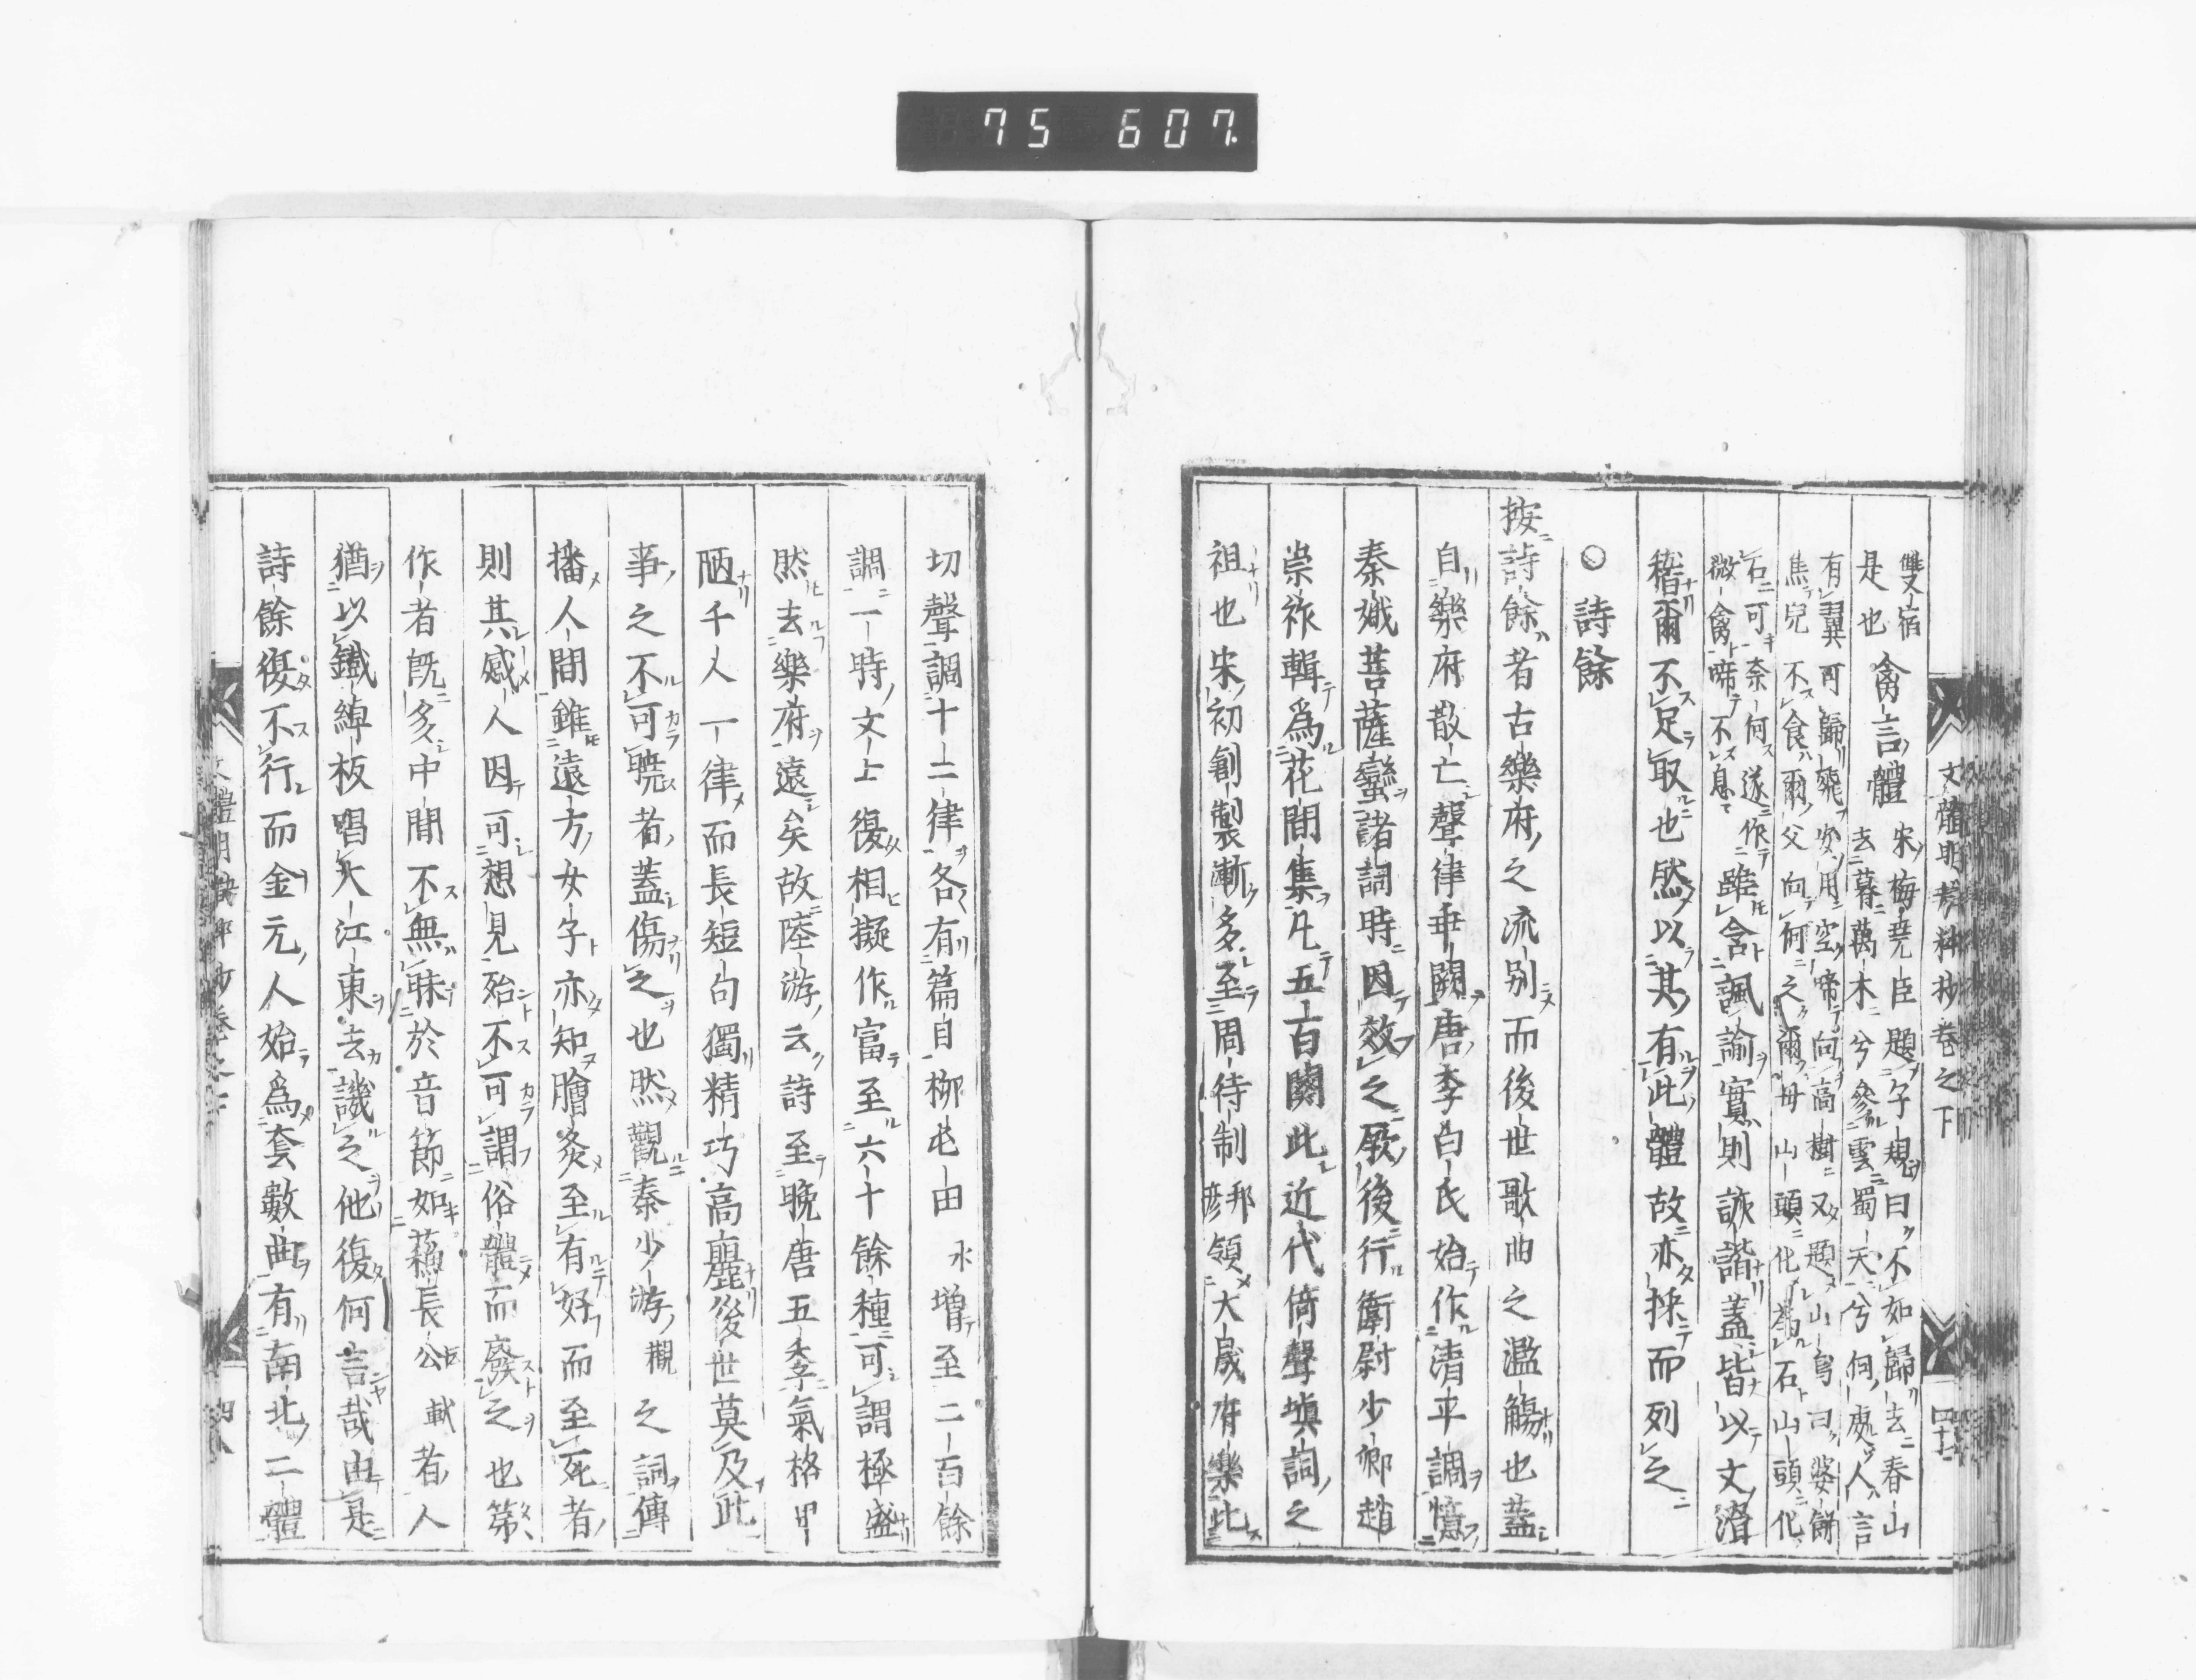 75 607
文體明辨抄卷之下
雙宿
是也
禽言體
宋梅堯臣題子規曰不如歸去春山
去暮萬木兮參雲蜀天兮何處人言
有翼可歸飛安用空啼向高樹又題山鳥曰婆餅
焦兒不食爾父向何之爾母山頭化爲石山頭化
石可奈何遂作
微禽啼不息
雖含諷諭實則詼諧蓋皆以文滑
稽爾不足取也然以其有此體故亦採而列之
○詩餘
按詩餘者古樂府之流別而後世歌曲之濫觴也蓋
自樂府散亡聲律乖闕唐李白氏始作清平調憶
秦娥菩薩蠻諸詞時因效之厥後行衛尉少卿趙
崇祚輯爲花間集凡五百闋此近代倚聲塡詞之
祖也宋初創製漸多至周待制邦彦領大晟府樂比
切聲調十二律各有篇自柳屯田永增至二百餘
調一時文士復相擬作富至六十餘種可謂極盛
然去樂府遠矣故陸游云詩至晚唐五季氣格卑
陋千人一律而長短句獨精巧高麗後世莫及此
事之不可曉者蓋傷之也然觀秦少游觀之詞傳
播人間雖遠方女子亦知膾炙至有好而至死者
則其感人因可想見殆不可謂俗體而廢之也第
作者既多中間不無昧於音節如蘇長公軾者人
猶以鐵綽板唱大江東去譏之他復何言哉由是
詩餘復不行而金元人始爲套數曲有南北二體